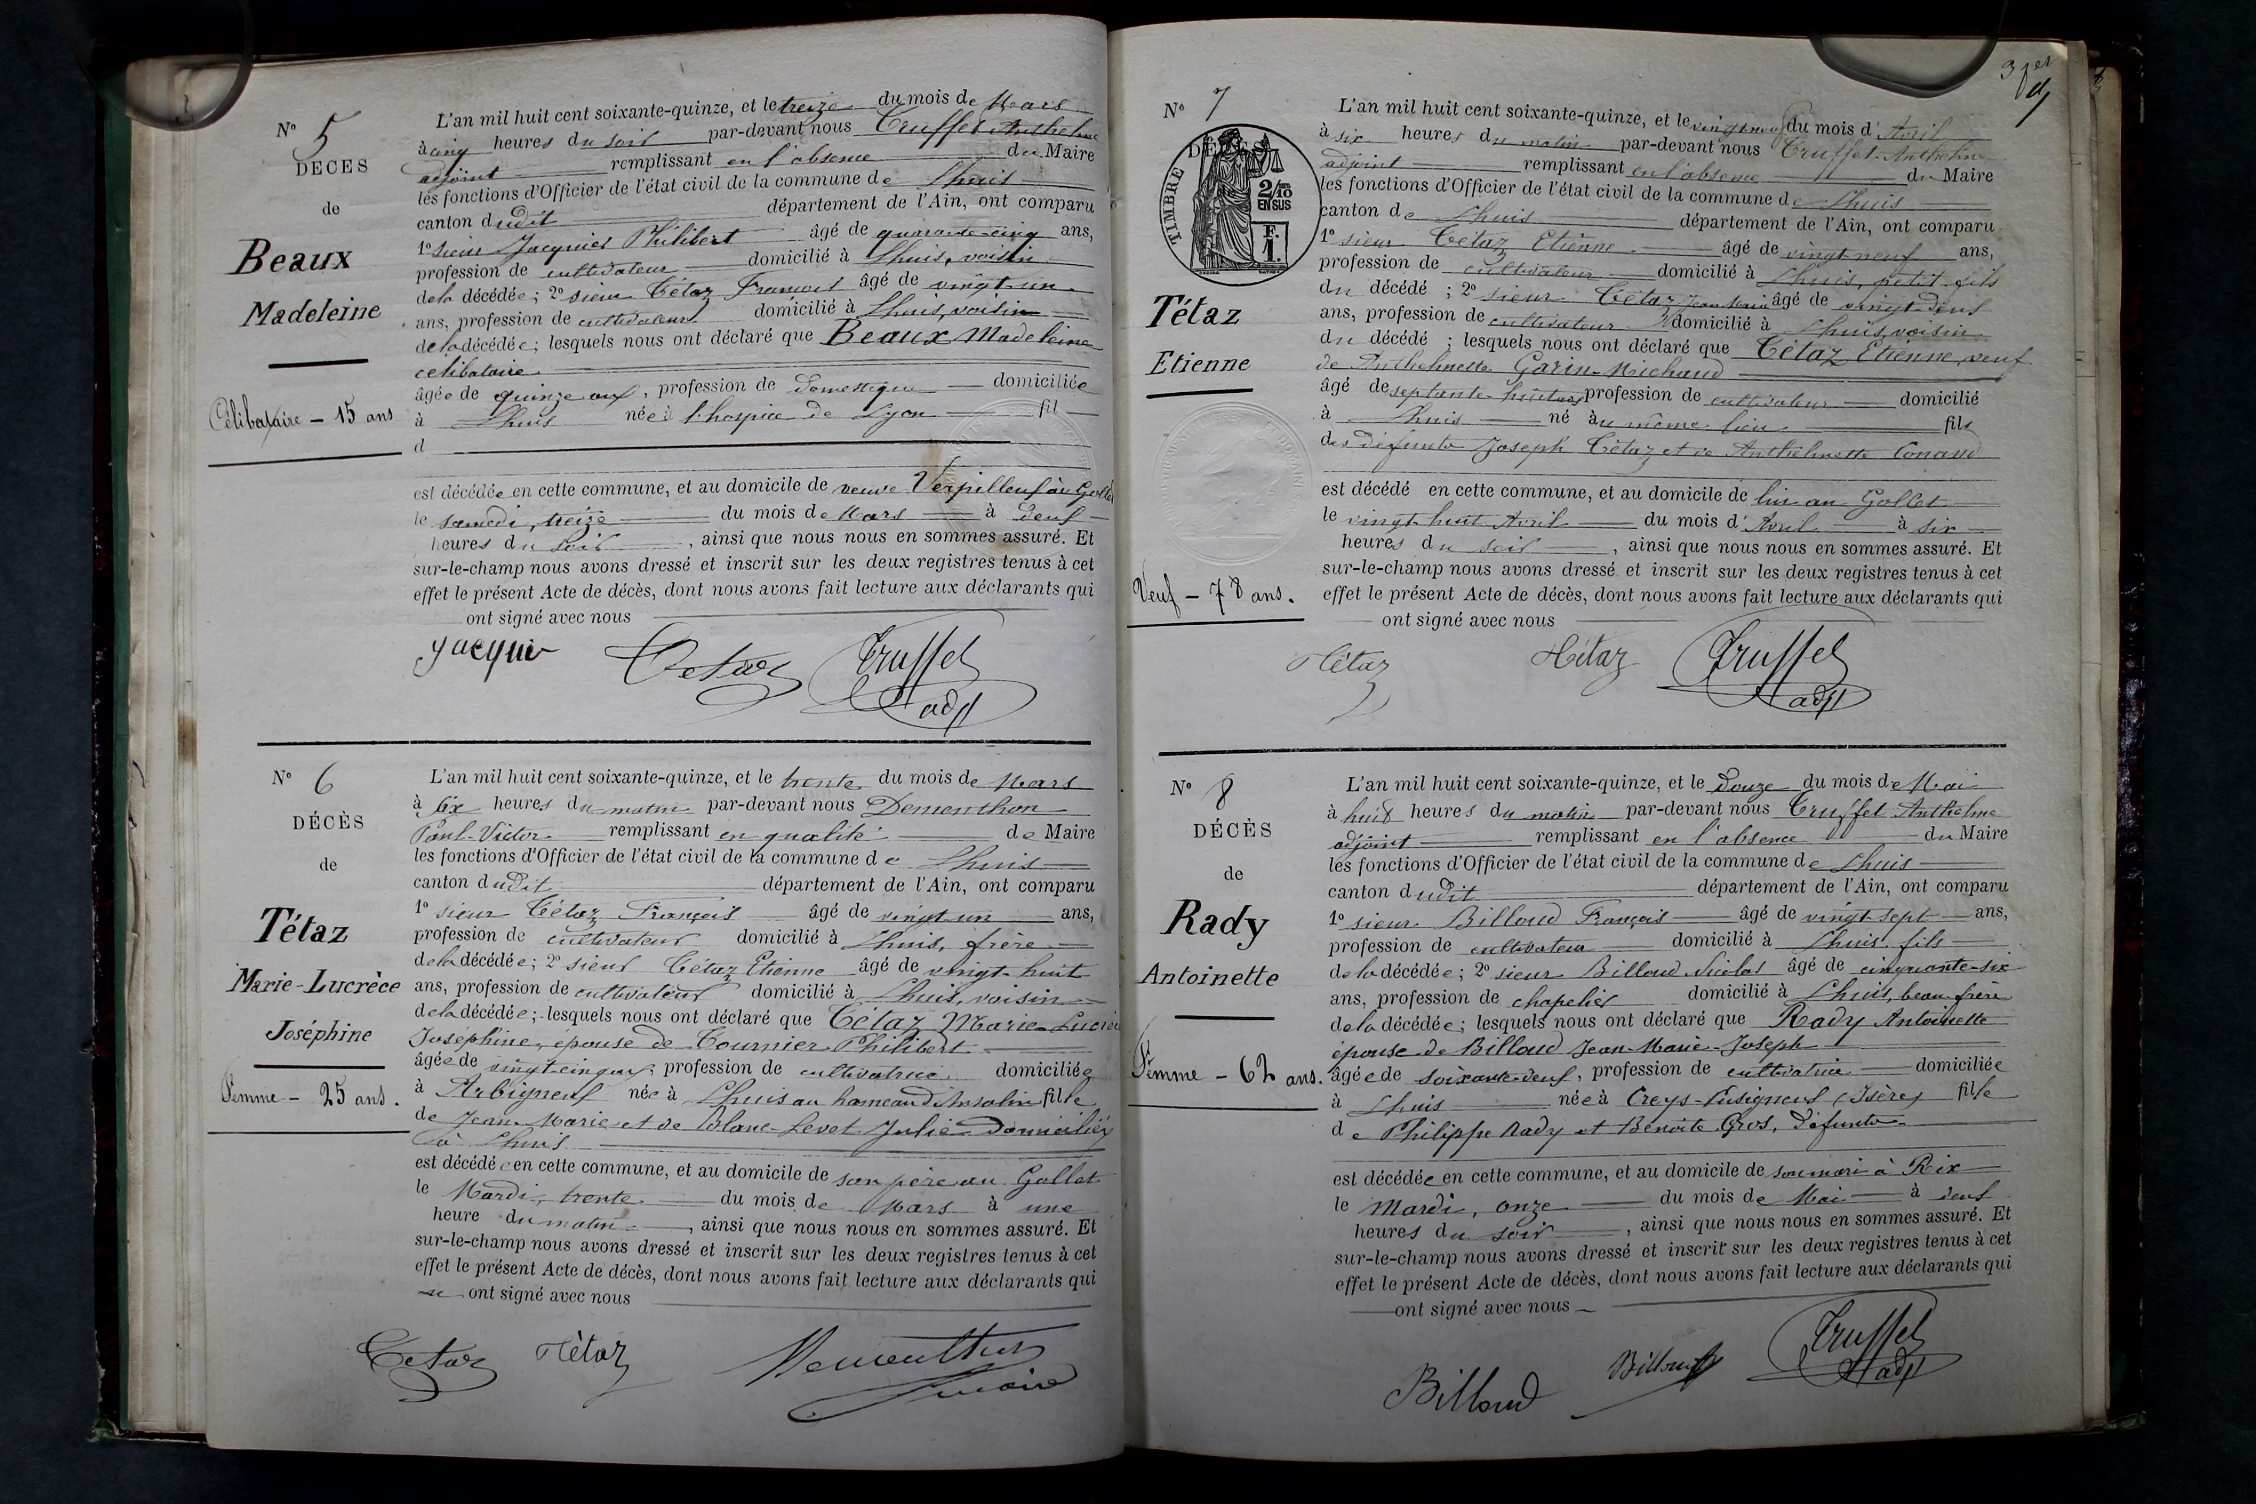 N° 5
DÉCÈS
de
Beaux
Madeleine
Célibataire - 15 ans
L'an mil huit cent soixante-quinze, et le treize du mois de Mars
à cinq heures du soir par-devant nous Truffet Anthelme
adjoint remplissant en l'absence du Maire
les fonctions d'Officier de l'état civil de la commune de Lhuis
canton dudit département de l'Ain, ont comparu
1° sieur Jacquier Philibert âgé de quarante-cinq ans,
profession de cultivateur domicilié à Lhuis, voisin
de la décédée; 2° sieur Tétaz François âgé de vingt un
ans, profession de cultivateur domicilié à Lhuis, voisin
de la décédée; lesquels nous ont déclaré que Beaux Madeleine
célibataire
âgée de quinze ans, profession de domestique domiciliée
à Lhuis née à l'hospice de Lyon fil
d
est décédée en cette commune, et au domicile de veuve Verpilleux au Gollet
le samedi, treize du mois de Mars à deux
heures du soir, ainsi que nous nous en sommes assuré. Et
sur-le-champ nous avons dressé et inscrit sur les deux registres tenus à cet
effet le présent Acte de décès, dont nous avons fait lecture aux déclarants qui
ont signé avec nous
Jacquier Tetaz Truffet
adj
N° 6
DÉCÈS
de
Tétaz
Marie-Lucrèce
Joséphine
Femme - 25 ans.
L'an mil huit cent soixante-quinze, et le trente du mois de Mars
à six heures du matin par-devant nous Dementhon
Paul-Victor remplissant en qualité de Maire
les fonctions d'Officier de l'état civil de la commune de Lhuis
canton dudit département de l'Ain, ont comparu
1° sieur Tétaz François âgé de vingt un ans,
profession de cultivateur domicilié à Lhuis, frère
de la décédée; 2° sieur Tétaz Etienne âgé de vingt-huit
ans, profession de cultivateur domicilié à Lhuis, voisin
de la décédée; lesquels nous ont déclaré que Tétaz Marie-Lucrèce
Joséphine, épouse de Tournier Philibert
âgée de vingt-cinq ans, profession de cultivatrice domiciliée
à Arbignieu née à Lhuis au hameau d'Ansolin fille
de Jean-Marie et de Blanc-Levet Julie domiciliés
à Lhuis
est décédée en cette commune, et au domicile de son père au Gollet
le Mardi, trente du mois de Mars à une
heure du matin, ainsi que nous nous en sommes assuré. Et
sur-le-champ nous avons dressé et inscrit sur les deux registres tenus à cet
effet le présent Acte de décès, dont nous avons fait lecture aux déclarants qui
ont signé avec nous
Tetaz Tétaz Dementhon
maire
3
N° 7
DÉCÈS
TIMBRE
2/10
EN SUS
F.
1.
Tétaz
Etienne
Veuf - 78 ans.
L'an mil huit cent soixante-quinze, et le vingt neuf du mois d'Avril
à six heures du matin par-devant nous Truffet Anthelme
adjoint remplissant en l'absence du Maire
les fonctions d'Officier de l'état civil de la commune de Lhuis
canton de Lhuis département de l'Ain, ont comparu
1° sieur Tétaz Etienne âgé de vingt neuf ans,
profession de cultivateur domicilié à Lhuis, petit-fils
du décédé; 2° sieur Tétaz Jean Marie âgé de vingt-deux
ans, profession de cultivateur domicilié à Lhuis, voisin
du décédé; lesquels nous ont déclaré que Tétaz Etienne, veuf
de Anthelmette Garin-Michaud
âgé de septante-huit ans profession de cultivateur domicilié
à Lhuis né au même lieu fils
des défunts Joseph Tétaz et de Anthelmette Conand
est décédé en cette commune, et au domicile de lui au Gollet
le vingt huit Avril du mois d'Avril à six
heures du soir, ainsi que nous nous en sommes assuré. Et
sur-le-champ nous avons dressé et inscrit sur les deux registres tenus à cet
effet le présent Acte de décès, dont nous avons fait lecture aux déclarants qui
ont signé avec nous
Tétaz Tétaz Truffet
adj
N° 8
DÉCÈS
de
Rady
Antoinette
Femme - 62 ans.
L'an mil huit cent soixante-quinze, et le douze du mois de Mai
à huit heures du matin par-devant nous Truffet Anthelme
adjoint remplissant en l'absence du Maire
les fonctions d'Officier de l'état civil de la commune de Lhuis
canton dudit département de l'Ain, ont comparu
1° sieur Billoud François âgé de vingt-sept ans,
profession de cultivateur domicilié à Lhuis, fils
de la décédée; 2° sieur Billoud Nicolas âgé de cinquante-six
ans, profession de chapelier domicilié à Lhuis, beau-frère
de la décédée; lesquels nous ont déclaré que Rady Antoinette
épouse de Billoud Jean-Marie-Joseph
âgée de soixante-deux, profession de cultivatrice domiciliée
à Lhuis née à Creys-Pusignieu (Isère) fille
de Philippe Rady et Benoite Gros, défunts
est décédée en cette commune, et au domicile de son mari à Rix
le Mardi, onze du mois de Mai à deux
heures du soir, ainsi que nous nous en sommes assuré. Et
sur-le-champ nous avons dressé et inscrit sur les deux registres tenus à cet
effet le présent Acte de décès, dont nous avons fait lecture aux déclarants qui
ont signé avec nous
Billoud Billoud Truffet
adj